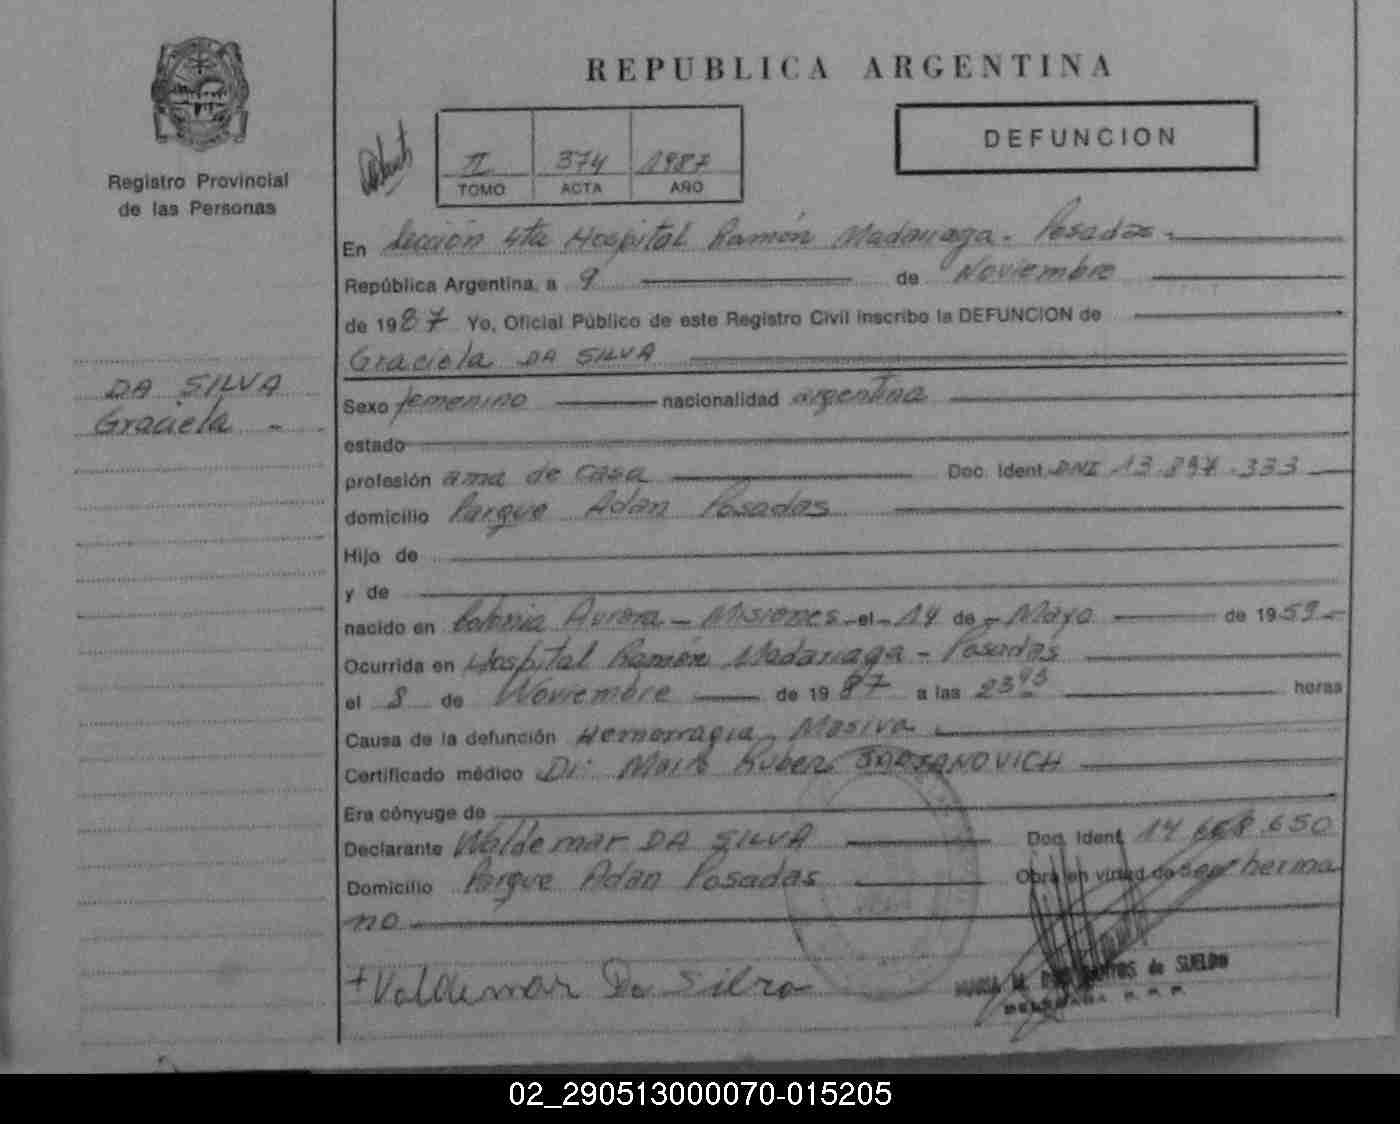 REPUBLICA ARGENTINA
DEFUNCION
Registro Provincial
de las Personas
II 374 1987
TOMO ACTA AÑO
En Sección 4ta Hospital Ramón Madariaga - Posadas -
República Argentina, a 9 de Noviembre
de 1987 Yo, Oficial Público de este Registro Civil inscribo la DEFUNCION de
Graciela DA SILVA
DA SILVA
Graciela -
Sexo femenino nacionalidad argentina
estado
profesión ama de casa Doc. Ident. DNI 13.897.333
domicilio Parque Adan Posadas
Hijo de
y de
nacido en Colonia Aurora - Misiones - el - 14 de - Mayo de 1959 -
Ocurrida en Hospital Ramón Madariaga - Posadas
el 8 de Noviembre de 1987 a las 23 horas
Causa de la defunción Hemorragia Masiva
Certificado médico Dr: Mario Ruben
Era cónyuge de
Declarante Waldemar DA SILVA Doc. Ident. 14.668.650
Domicilio Parque Adan Posadas Obra en virtud de ser herma
no
Valdemar Da Silva
MARIA M. DOS SANTOS de SUELDO
02_290513000070-015205